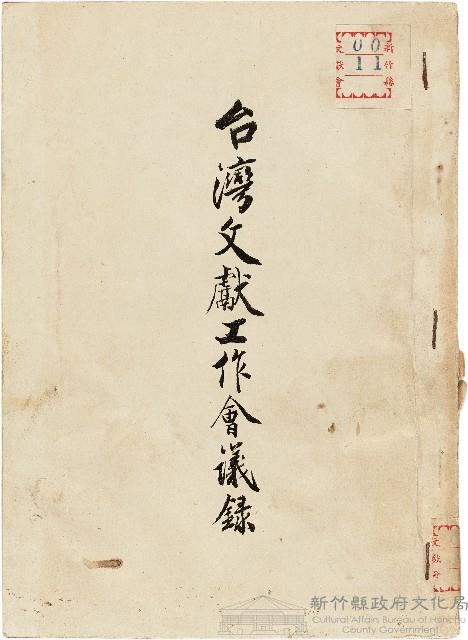 新竹縣
00
11
文獻會
台灣文獻工作會議錄
文獻會
新竹縣政府文化局
Cultural Affairs Bureau of Hsinchu
County Government